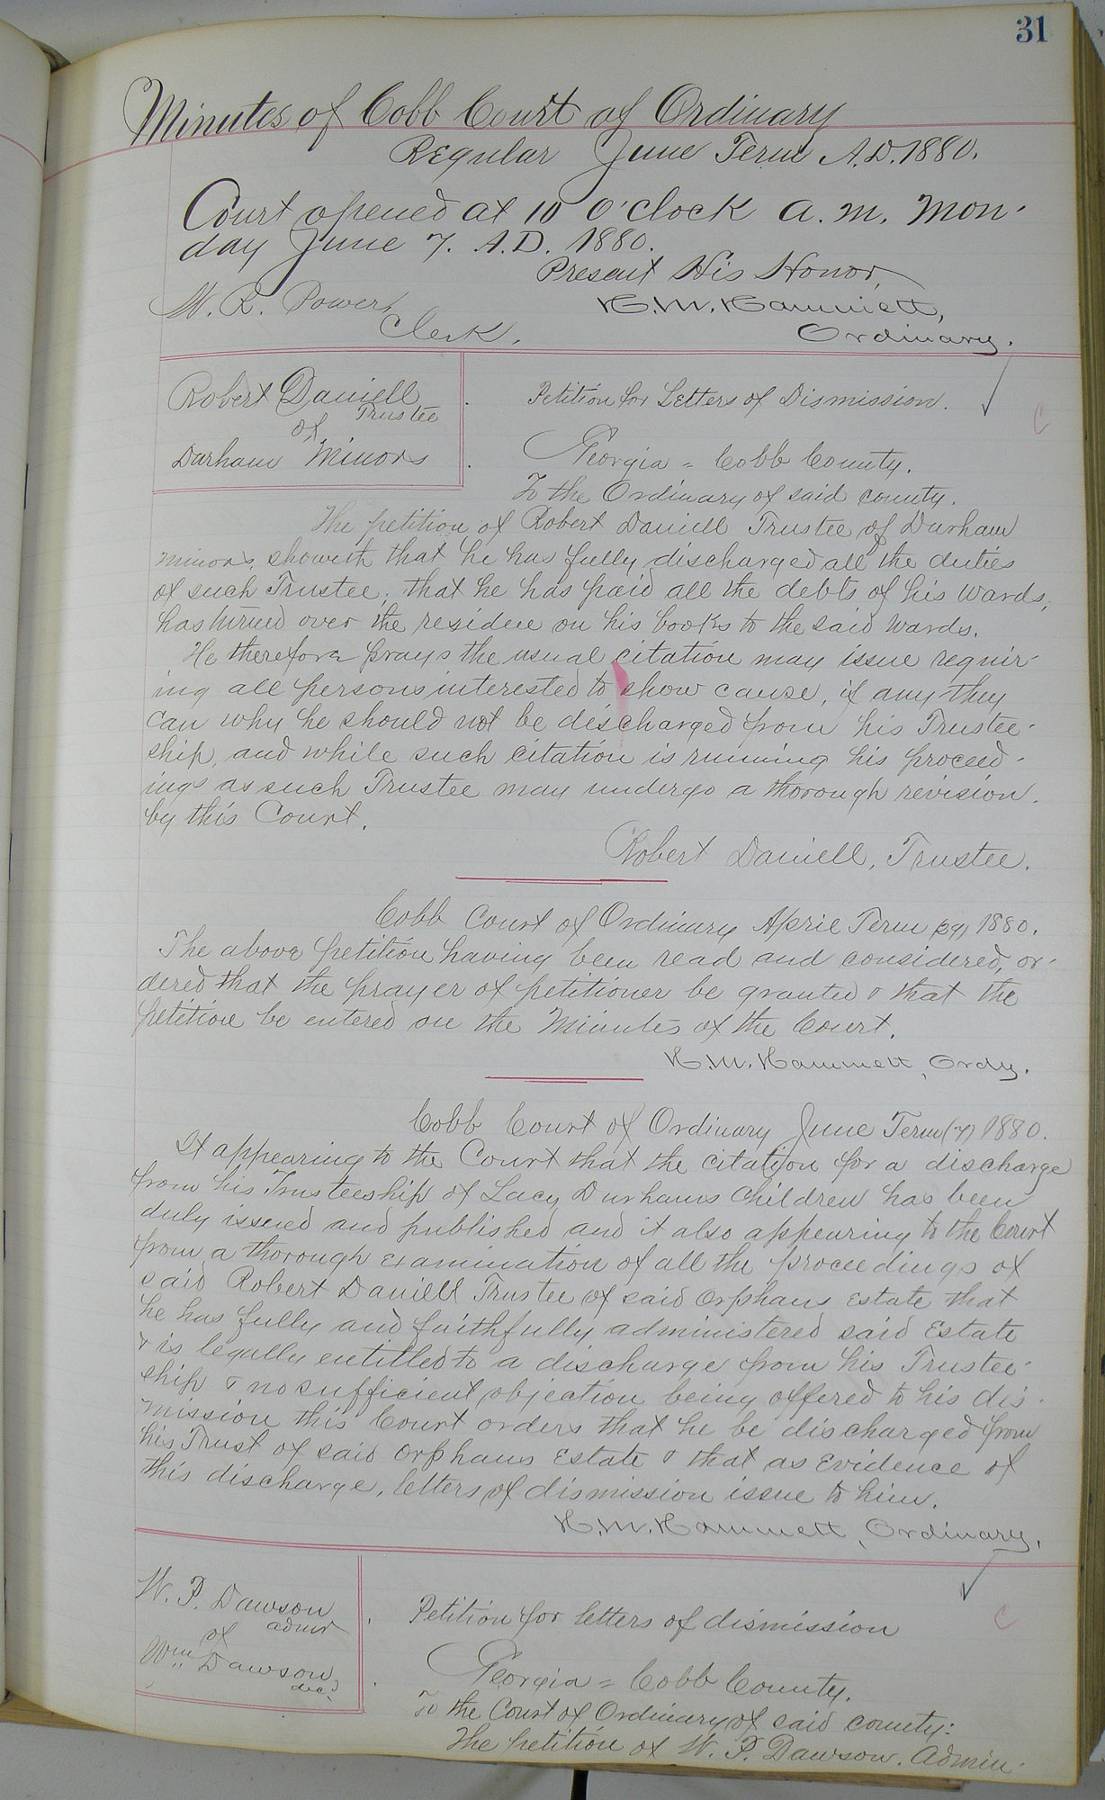 31
Minutes of Cobb Court of Ordinary
Regular June Term A.D. 1880.
Court opened at 10 O'clock a.m. Mon-
day June 7. A.D. 1880.
Present His Honor,
W. R. Power, H. M. Hammett,
Clerk. Ordinary.
Robert Daniell Petition for Letters of Dismission.
Trustee
of
Durham Minors Georgia = Cobb County.
To the Ordinary of said county.
The petition of Robert Daniell Trustee of Durham
minors, showeth that he has fully discharged all the duties
of such Trustee, that he has paid all the debts of his wards,
has turned over the residue on his books to the said wards.
He therefore prays the usual citation may issue requir-
ing all persons interested to show cause, if any they
can why he should not be discharged from his Trustee-
ship, and while such citation is running his proceed-
ings as such Trustee may undergo a thorough revision
by this Court.
Robert Daniell, Trustee.
Cobb Court of Ordinary April Term 1880.
The above petition having been read and considered, or-
dered that the prayer of petitioner be granted & that the
petition be entered on the Minutes of the Court.
H. M. Hammett, Ordy.
Cobb Court of Ordinary June Term (7) 1880.
It appearing to the Court that the citation for a discharge
from his Trusteeship of Lacy Durhams Children has been
duly issued and published and it also appearing to the Court
from a thorough examination of all the proceedings of
said Robert Daniell Trustee of said Orphans Estate that
he has fully and faithfully administered said Estate
& is legally entitled to a discharge from his Trustee-
ship & no sufficient objection being offered to his dis-
mission this Court orders that he be discharged from
his Trust of said Orphans Estate & that as Evidence of
this discharge, letters of dismission issue to him.
H. M. Hammett, Ordinary.
W. P. Dawson Petition for letters of dismission
admr
of
Wm Dawson Georgia = Cobb County.
dec.
To the Court of Ordinary of said county:
The petition of W. P. Dawson, Admin-